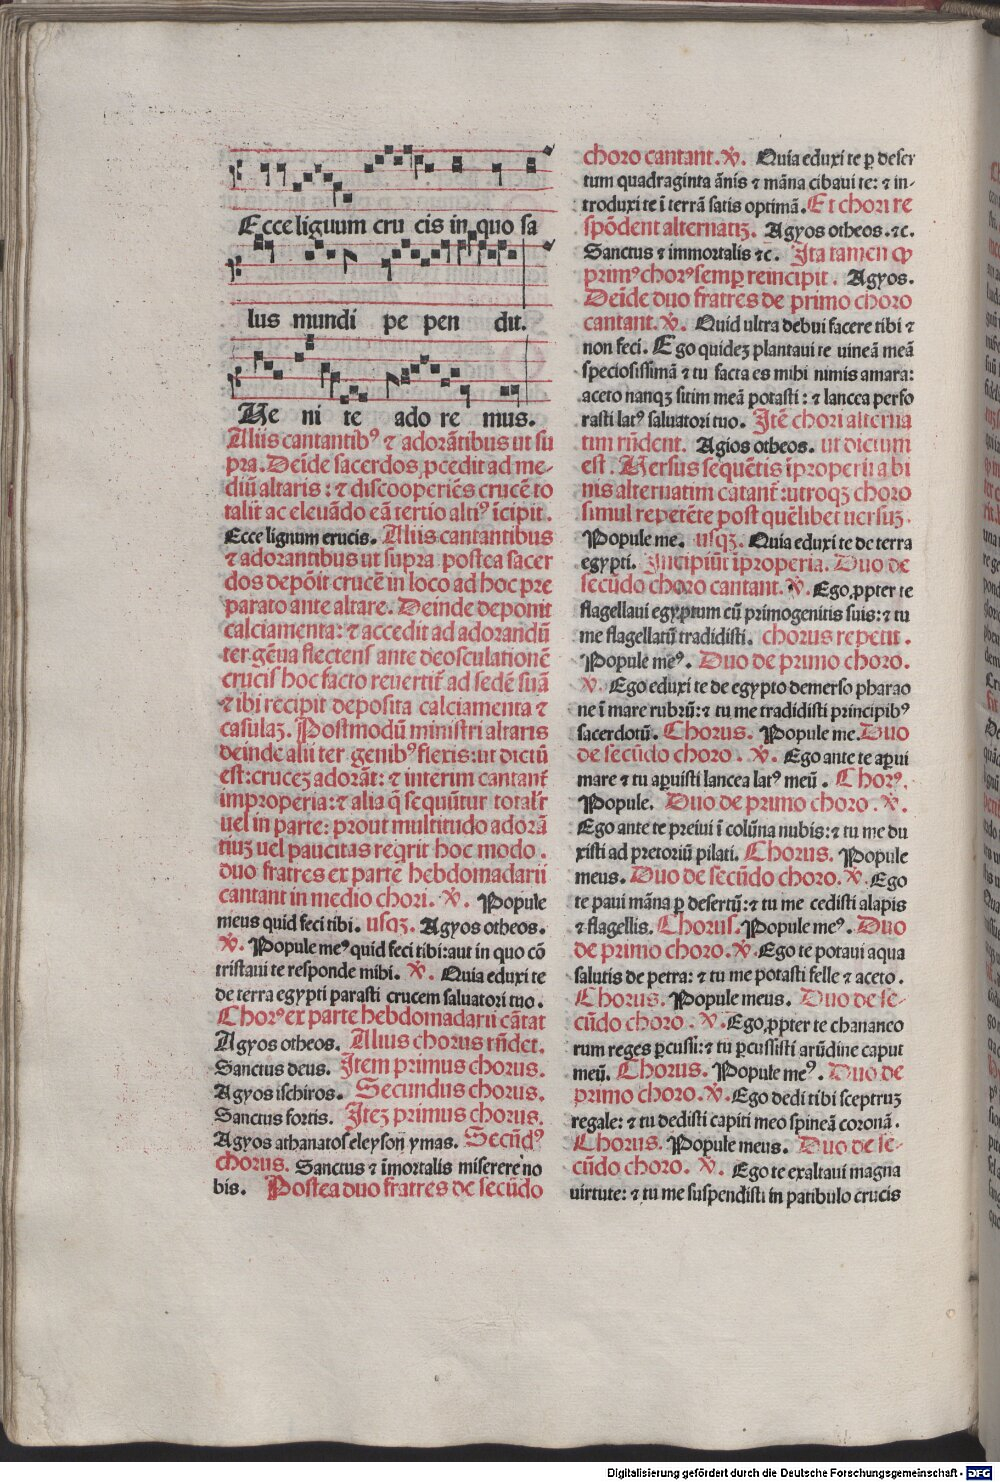 Ecce lignum cru cis in quo sa
lus mundi pe pen dit.
Ve ni te ado re mus.
Aliis cantantibꝰ ⁊ adorãtibus ut su
pra. Deĩde sacerdos ꝓcedit ad me-
diũ altaris: ⁊ discooperiẽs crucẽ to
talit̃ ac eleuãdo eã tertio altiꝰ ĩcipit.
Ecce lignum crucis. Aliis cantantibus
⁊ adorantibus ut supra postea sacer
dos depõit crucẽ in loco ad hoc pre
parato ante altare. Deinde deponit
calciamenta: ⁊ accedit ad adorandũ
ter gẽua flectens ante deosculationẽ
crucis hoc facto reuertit̃ ad sedẽ suã
⁊ ibi recipit deposita calciamenta ⁊
casulaʒ. Postmodũ ministri altaris
deinde alii ter genibꝰ flexis: ut dictũ
est: cruceʒ adorãt: ⁊ interim cantant̃
improperia: ⁊ alia q̃ sequũtur totalr̃
uel in parte: prout multitudo adorã
tiuʒ uel paucitas reqrit hoc modo.
duo fratres ex parte hebdomadarii
cantant in medio chori. ℣. Popule
meus quid feci tibi. usqʒ. Agyos otheos.
℣. Popule meꝰ quid feci tibi: aut in quo cõ
tristaui te responde mihi. ℣. Quia eduxi te
de terra egypti parasti crucem saluatori tuo.
Chorꝰ ex parte hebdomadarii cãtat
Agyos otheos. Alius chorus rñdet.
Sanctus deus. Item primus chorus.
Agyos ischiros. Secundus chorus.
Sanctus fortis. Iteʒ primus chorus.
Agyos athanatos eleyson ymas. Secũdꝰ
chorus. Sanctus ⁊ ĩmortalis miserere no
bis. Postea duo fratres de secũdo
choro cantant. ℣. Quia eduxi te ꝑ deser
tum quadraginta ãnis ⁊ mãna cibaui te: ⁊ in-
troduxi te ĩ terrã satis optimã. Et chori re
spõdent alternatiʒ. Agyos otheos. ⁊c.
Sanctus ⁊ immortalis ⁊c. Ita tamen ꝙ
primꝰ chorꝰ semꝑ reincipit. Agyos.
Deĩde duo fratres de primo choro
cantant. ℣. Quid ultra debui facere tibi ⁊
non feci. Ego quideʒ plantaui te uineã meã
speciosissimã ⁊ tu facta es mihi nimis amara:
aceto nanqʒ sitim meã potasti: ⁊ lancea perfo
rasti latꝰ saluatori tuo. Itẽ chori alterna
tim rñdent. Agios otheos. ut dictum
est. Versus sequẽtis ĩproperii a bi
nis alternatim cãtant̃: utroqʒ choro
simul repetẽte post quẽlibet uersuʒ.
Popule me. usqʒ. Quia eduxi te de terra
egypti. Incipiũt ĩproperia. Duo de
secũdo choro cantant. ℣. Ego ꝓpter te
flagellaui egyptum cũ primogenitis suis: ⁊ tu
me flagellatũ tradidisti. chorus repetit.
Popule meꝰ. Duo de primo choro.
℣. Ego eduxi te de egypto demerso pharao
ne ĩ mare rubrũ: ⁊ tu me tradidisti principibꝰ
sacerdotũ. Chorus. Popule me. Duo
de secũdo choro. ℣. Ego ante te aꝑui
mare ⁊ tu aꝑuisti lancea latꝰ meũ. Chorꝰ.
Popule. Duo de primo choro. ℣.
Ego ante te preiui ĩ colũna nubis: ⁊ tu me du
xisti ad pretoriũ pilati. Chorus. Popule
meus. Duo de secũdo choro. ℣. Ego
te paui mãna ꝑ desertũ: ⁊ tu me cedisti alapis
⁊ flagellis. Chorus. Popule meꝰ. Duo
de primo choro. ℣. Ego te potaui aqua
salutis de petra: ⁊ tu me potasti felle ⁊ aceto.
Chorus. Popule meus. Duo de se-
cũdo choro. ℣. Ego ꝓpter te chananeo
rum reges ꝑcussi: ⁊ tu ꝑcussisti arũdine caput
meũ. Chorus. Popule meꝰ. Duo de
primo choro. ℣. Ego dedi tibi sceptruʒ
regale: ⁊ tu dedisti capiti meo spineã coronã.
Chorus. Popule meus. Duo de se-
cũdo choro. ℣. Ego te exaltaui magna
uirtute: ⁊ tu me suspendisti in patibulo crucis
Digitalisierung gefördert durch die Deutsche Forschungsgemeinschaft - DFG